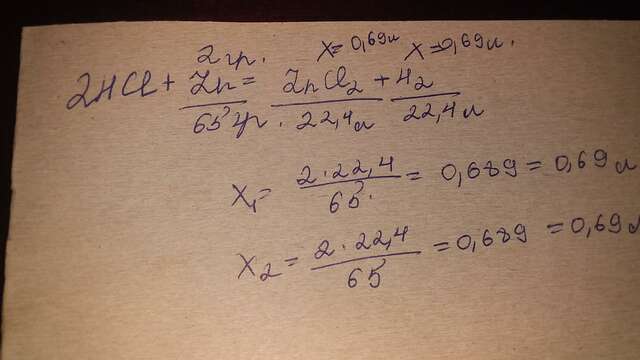 2 гр. X=0,69л X=0,69л.
2HCl + Zn = ZnCl2 + H2
65 гр. 22,4л 22,4л
X1 = 2·22,4/65 = 0,689 = 0,69л
X2 = 2·22,4/65 = 0,689 = 0,69л